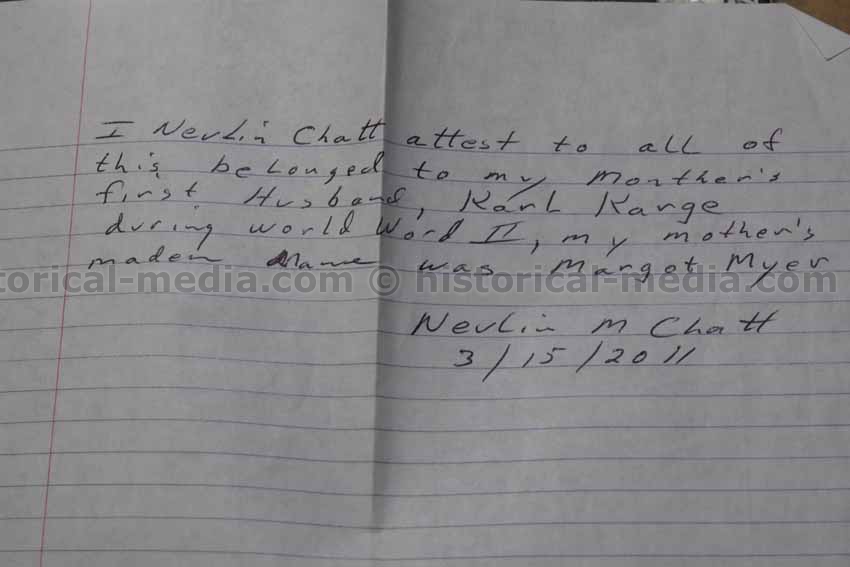 I Nevlin Chatt attest to all of
this belonged to my monther's
first Husband, Karl Karge
during world Word II, my mother's
maden Name was Margot Myer
torical-media.com © historical-media.com © historical-media.com
Nevlin M Chatt
3/15/2011